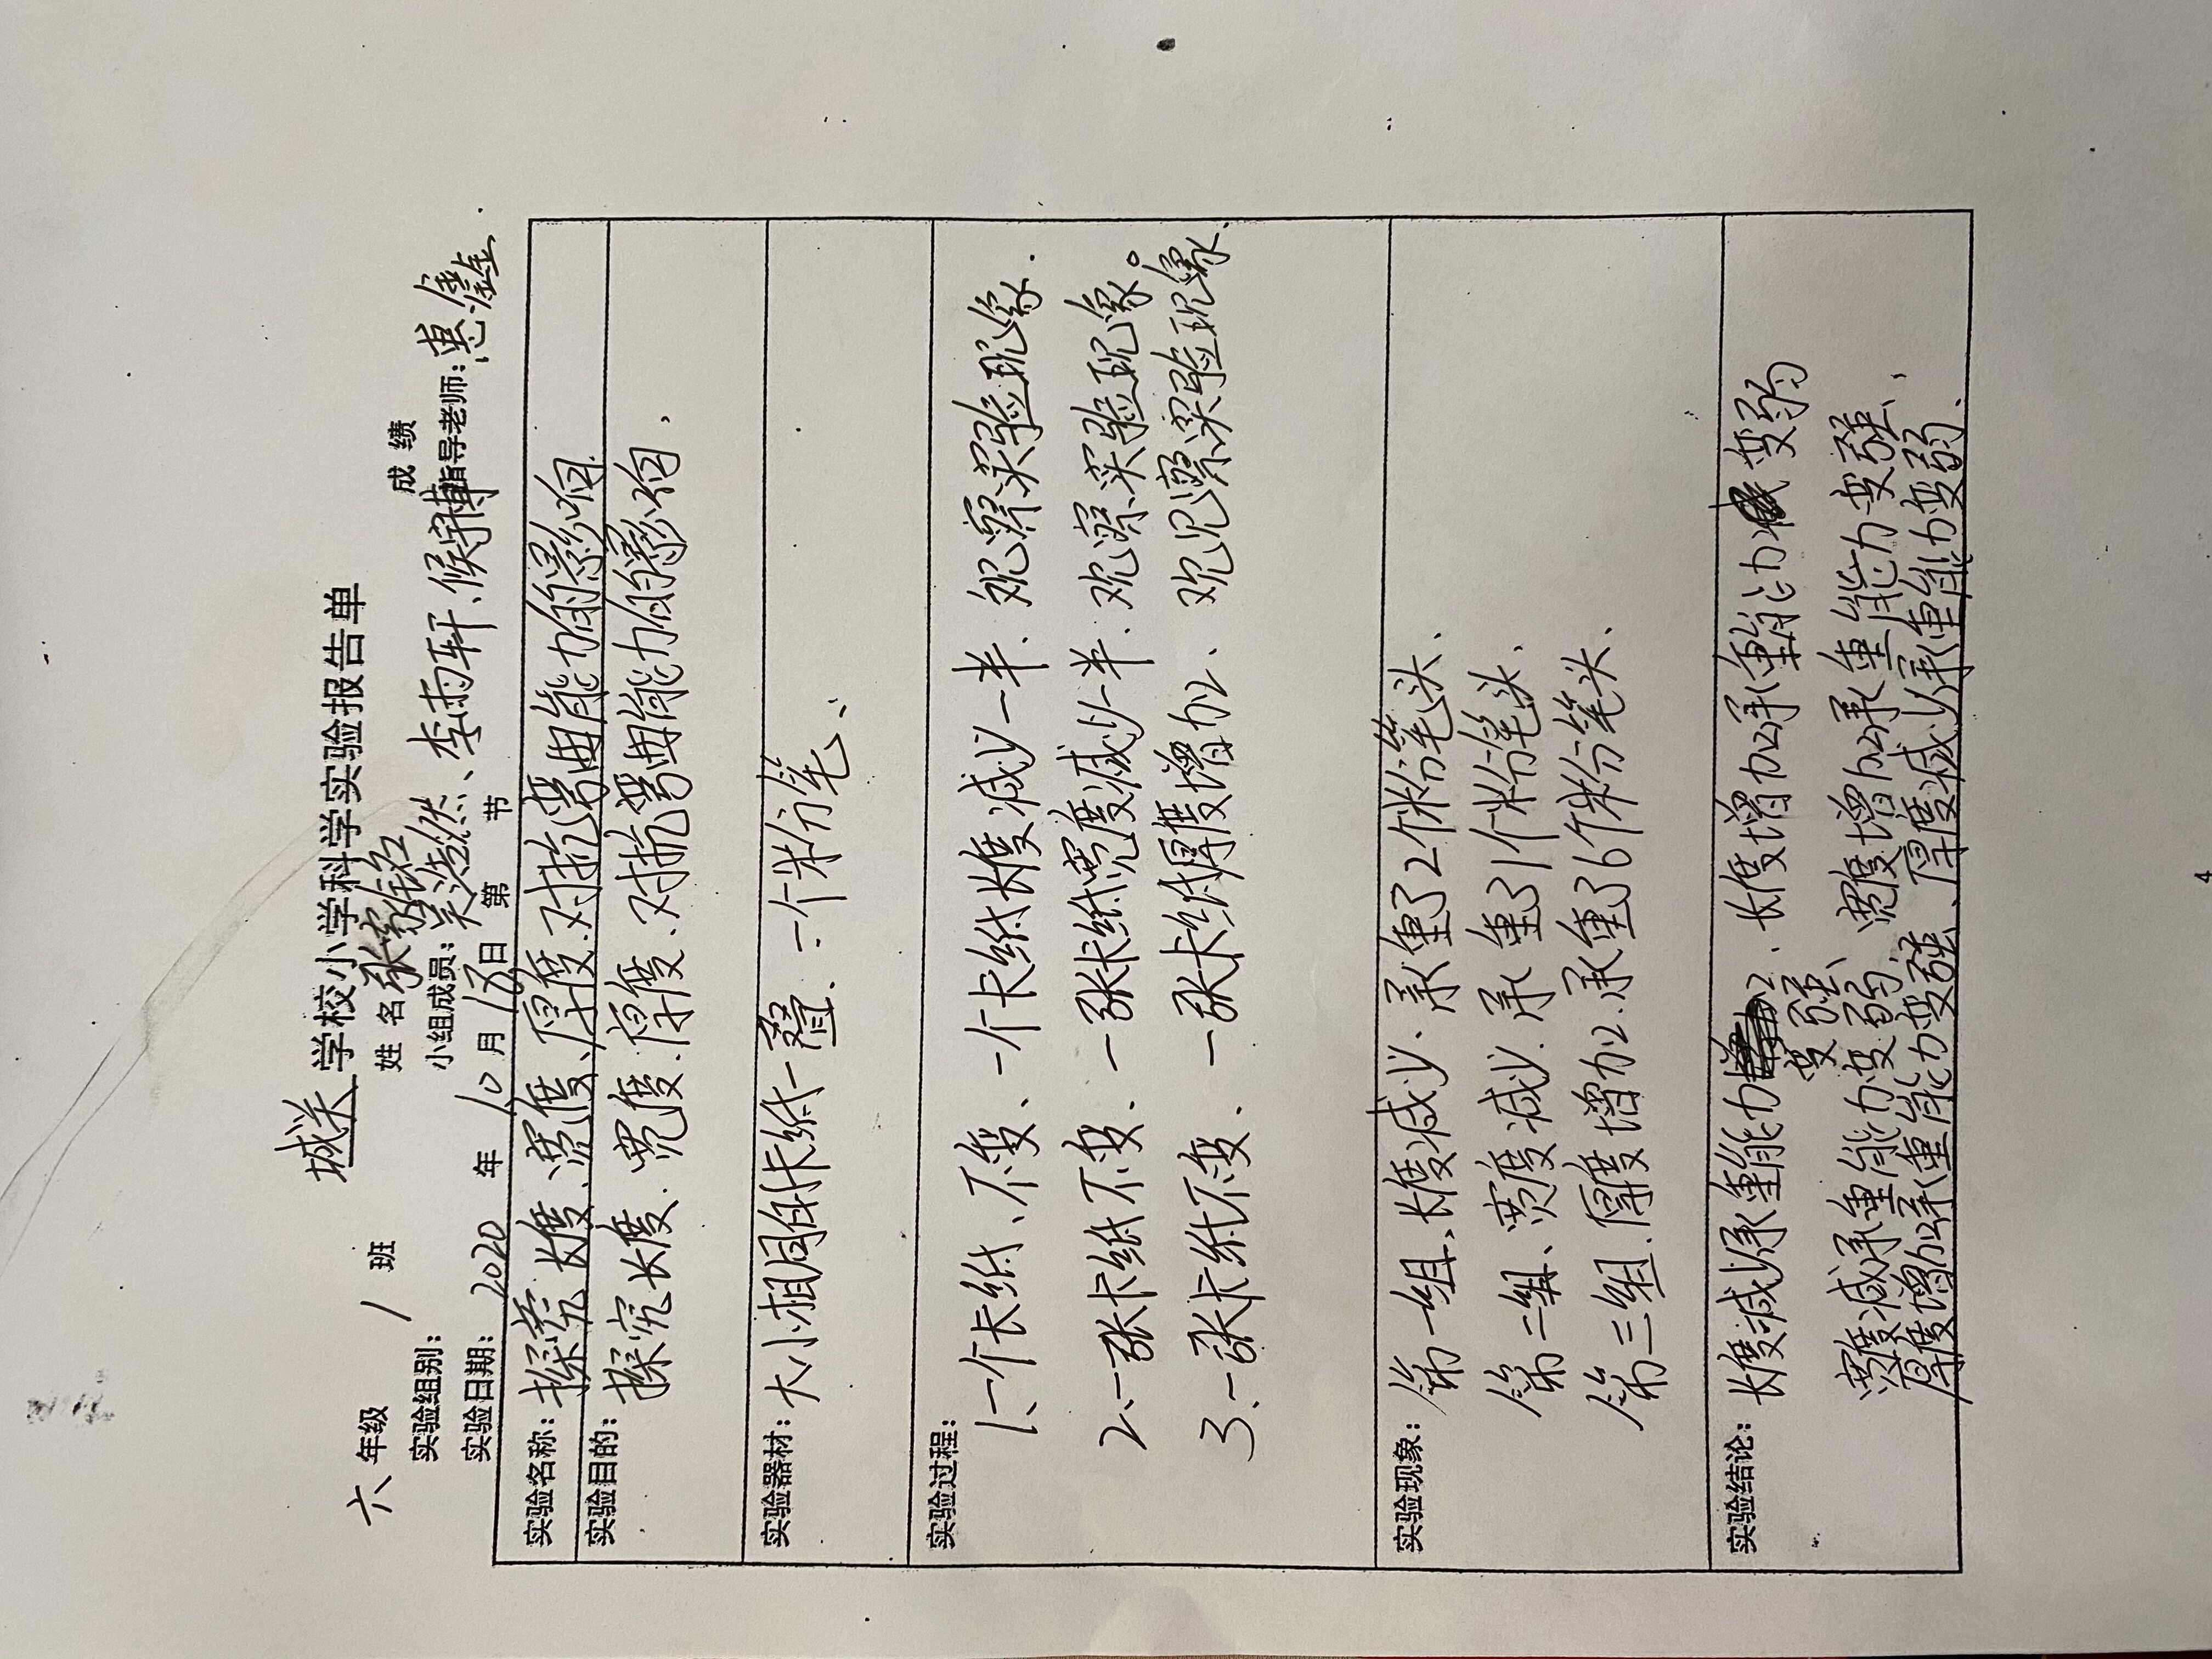 城关 学校小学学科学实验报告单
六 年级 1 班 姓 名 张家铭 成 绩
实验组别： 小组成员：吴浩然、李雨轩、候宇博 指导老师：惠鑫
实验日期： 2020 年 10 月 13 日 第 节
实验名称：探究长度、宽度、厚度.对抗弯曲能力的影响.
实验目的：探究长度.宽度.厚度.对抗弯曲能力的影响.
实验器材：大小相同的卡纸一叠、一个粉笔、
实验过程：
1、一个卡纸、不变、一个卡纸长度减少一半.观察实验现像.
2、一张卡纸不变.一张卡纸宽度减少一半.观察实验现像。
3、一张卡纸不变.一张卡纸厚度增加2、观察实验现像.
实验现象：第一组、长度减少.承重了2个粉笔头.
第二组、宽度减少.承重了1个粉笔头.
第三组.厚度增加2.承重了6个粉笔头.
实验结论：长度减少承重能力变强、长度增加承重能力变弱
宽度减少承重能力变弱、宽度增加承重能力变强、
厚度增加承重能力变强、厚度减少承重能力变弱.
4